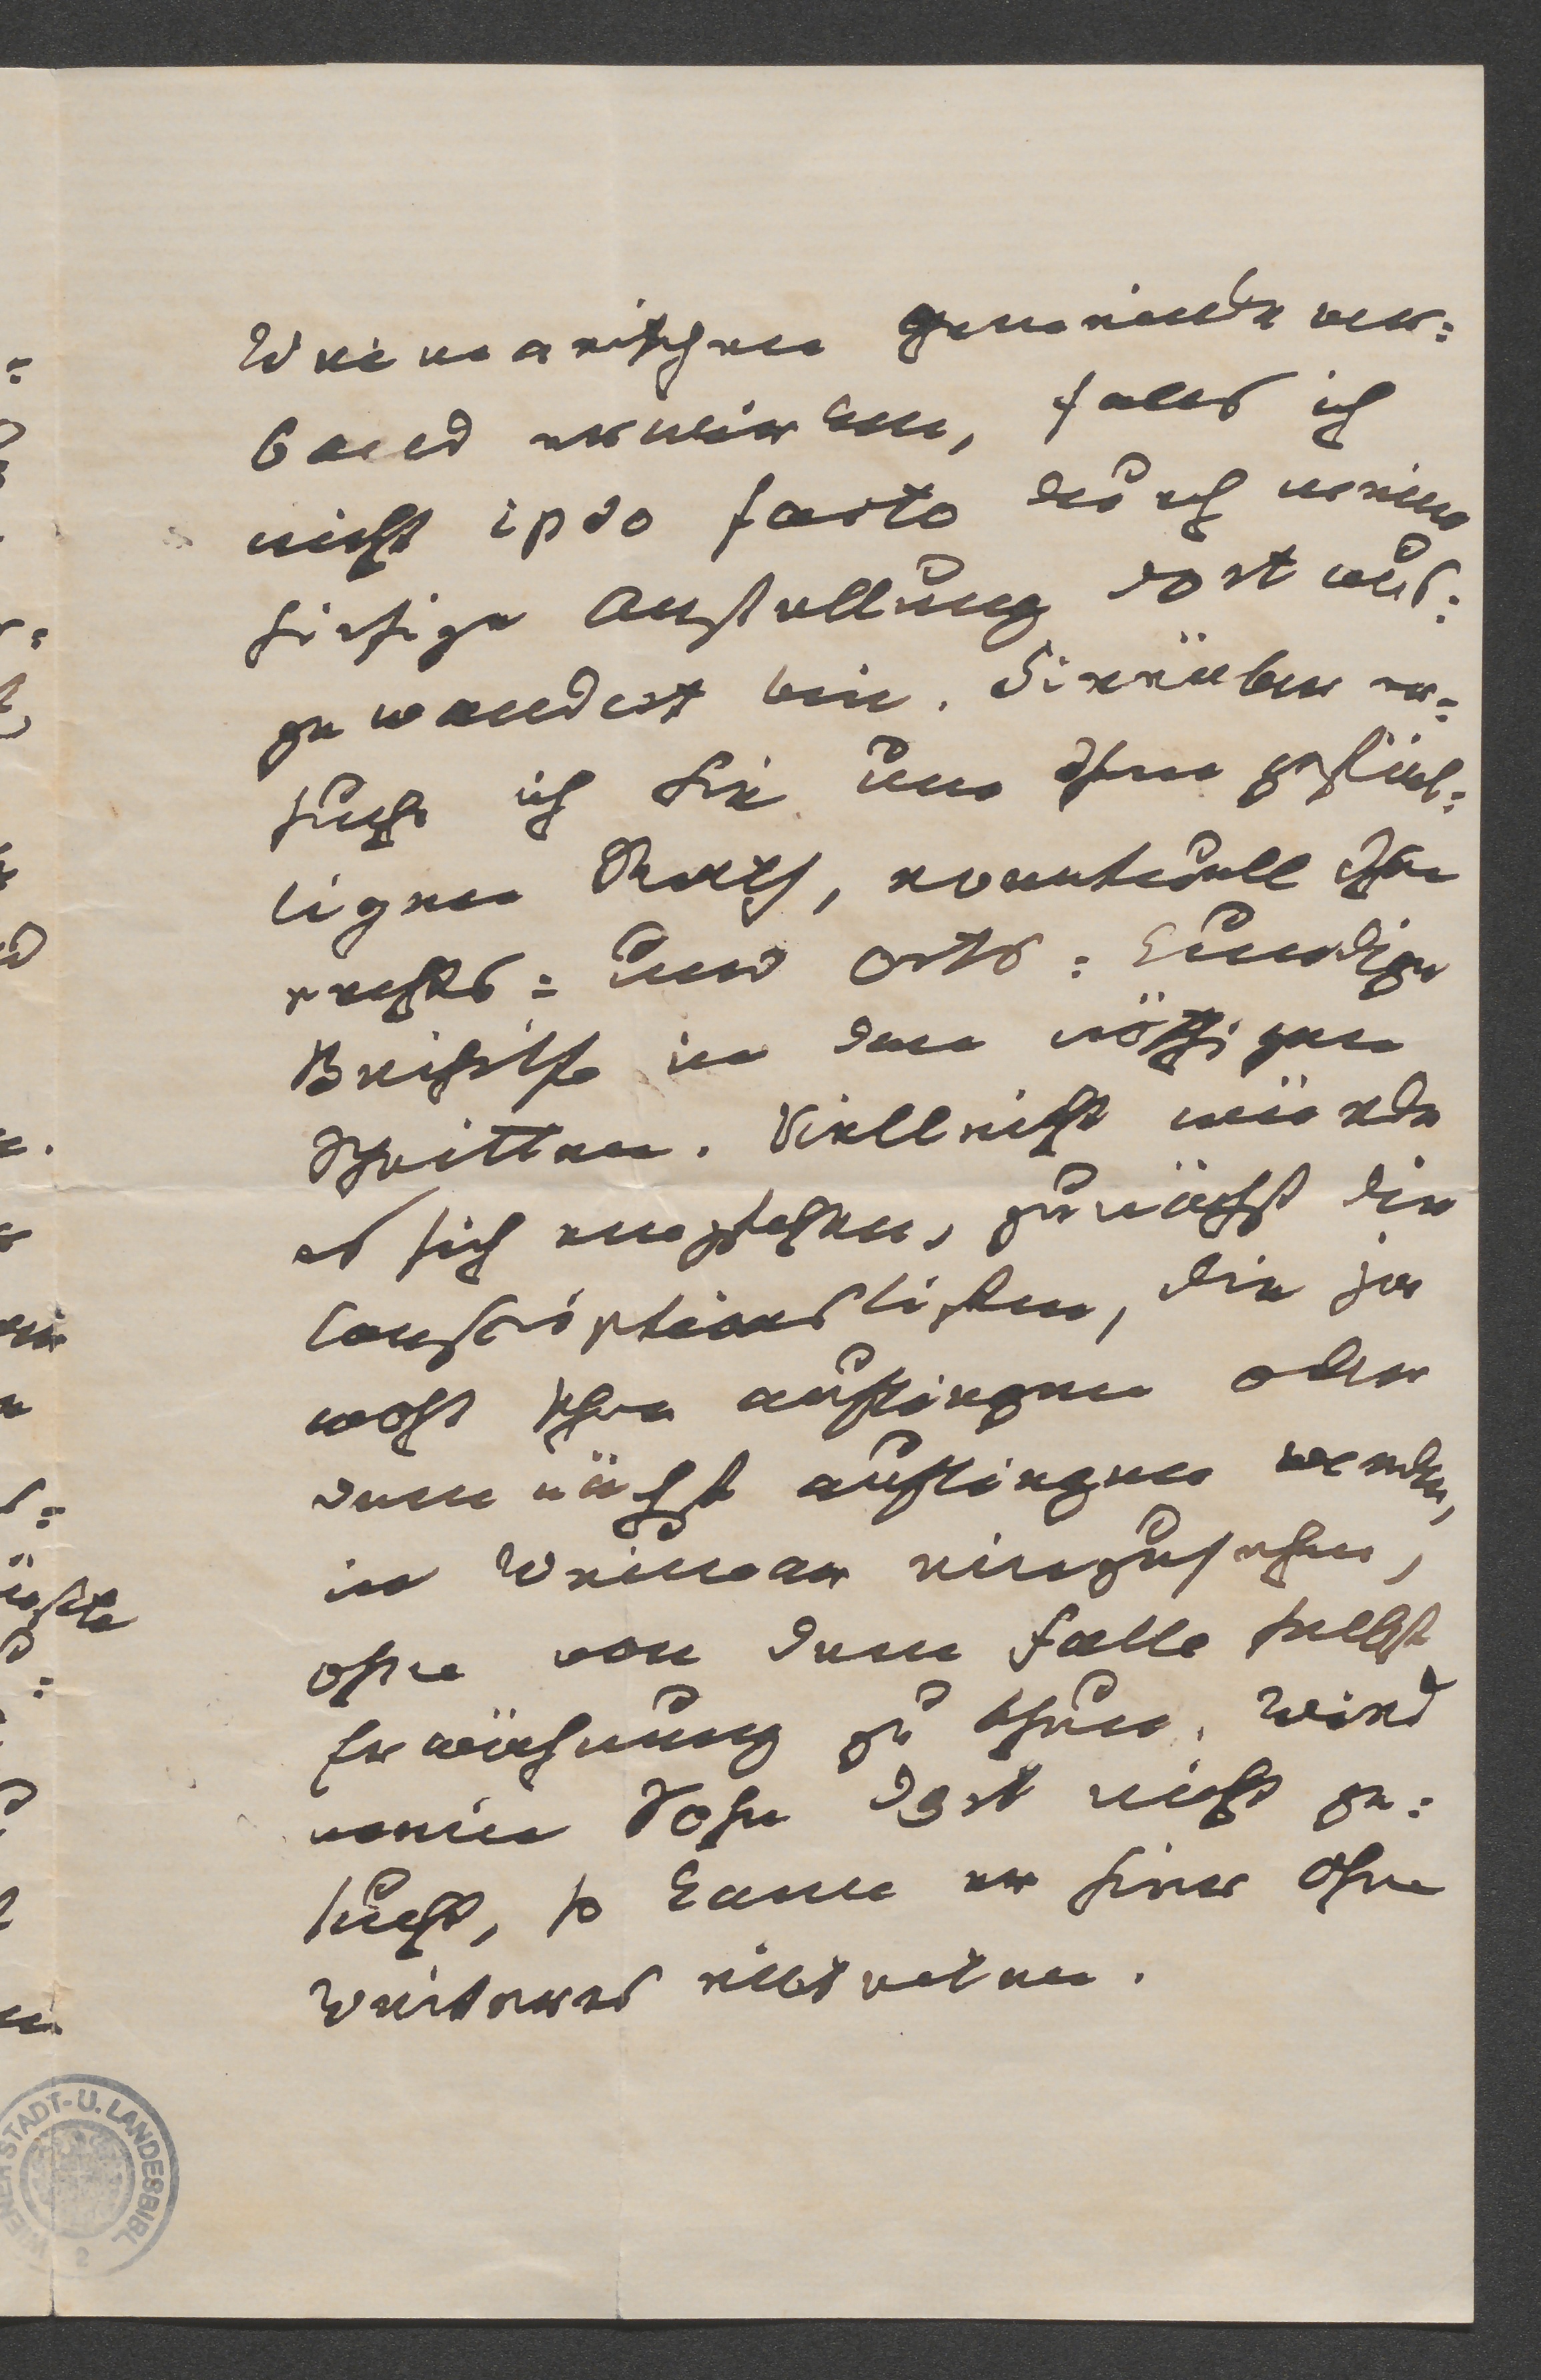 Weimarischen gemeindever=
band erwirken, falls ich
nicht ipso facto durch meine
hiesige Anstellung dort aus=
gewandert bin. Hierüber er=
suche ich Sie um Ihren
Rath, eventuell Ihre
rechts= und orts=kundige
Beihilfe in den nöthigen
Schritten. Vielleicht würde
es sich empfehlen, zunächst die
Conscriptionslisten, die ja
wohl schon aufliegen oder
demnächst aufliegen werden,
in Weimar einzusehen,
ohne von dem Falle selbst
Erwähnung zu thun. Wird
mein Sohn dort nicht ge=
sucht, so kann er hier ohne
Weiteres eintreten.
WIENER STADT- U. LANDESBIBL.
2